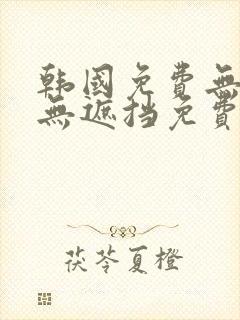 韩國免費無
無遮挡免費
茯苓夏橙